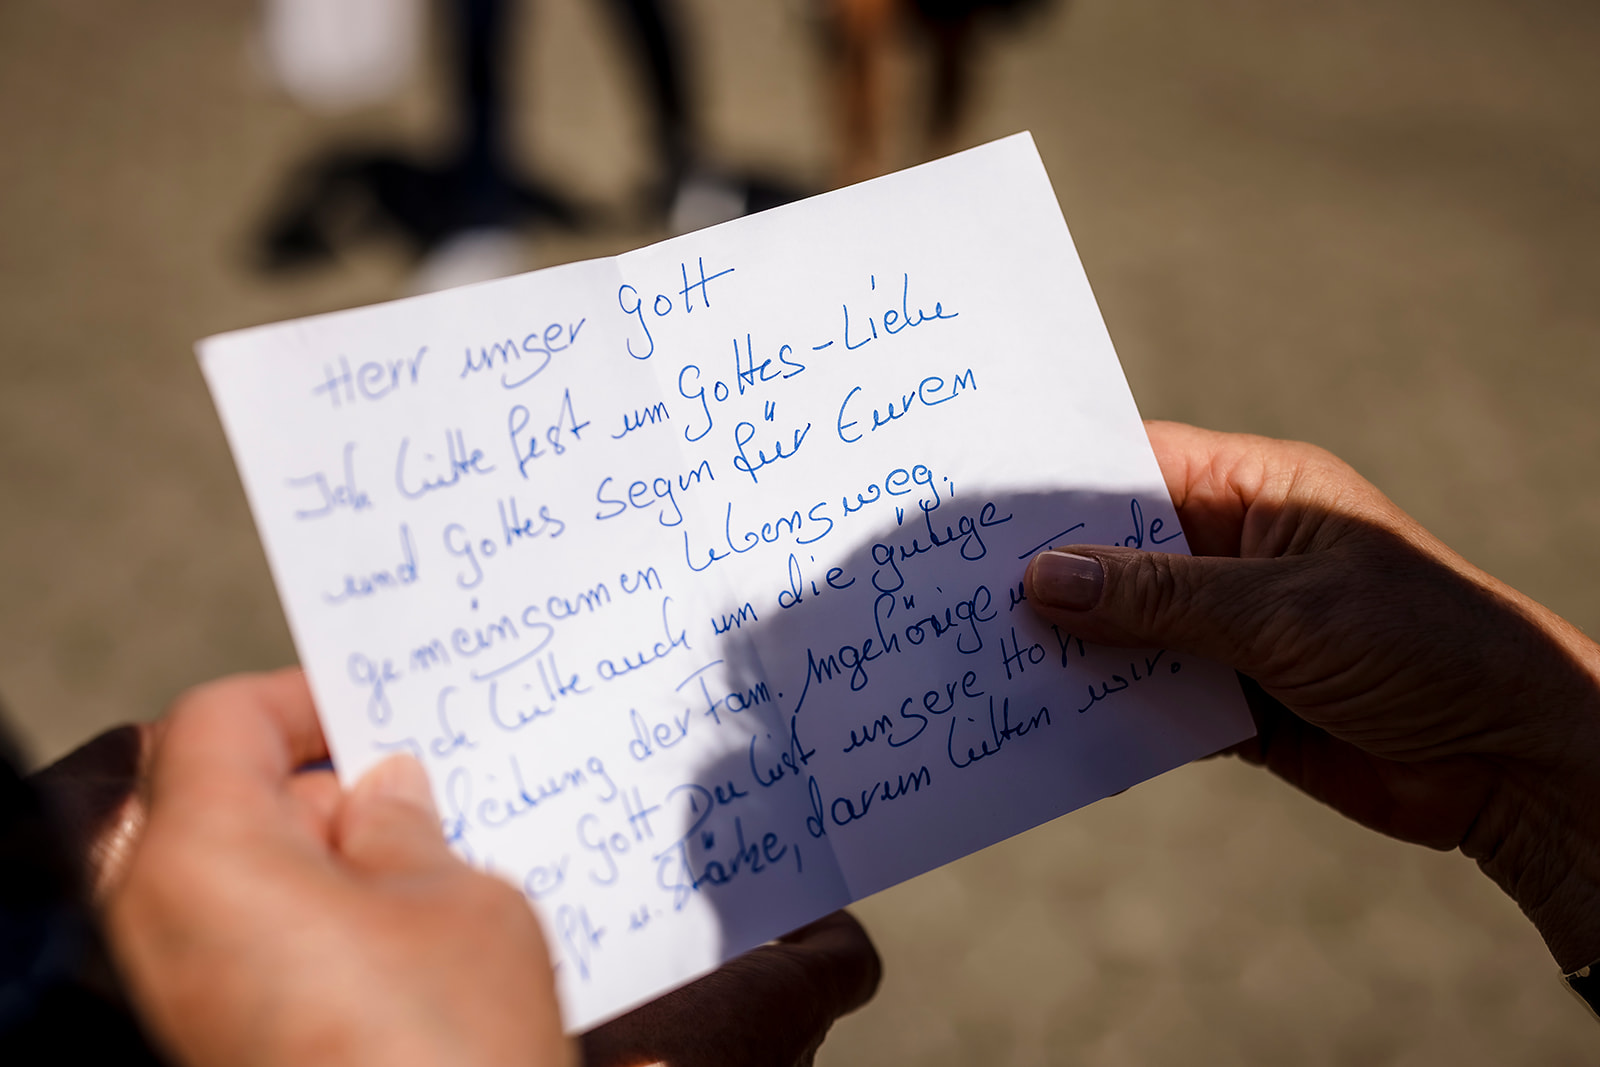 Herr unser Gott
Ich bitte fest um Gottes-Liebe
und Gottes Segen für Euren
gemeinsamen Lebensweg,
Ich bitte auch um die gütige
der Fam. Angehörige u.
Gott Du bist unsere
u. Stärke, darum bitten wir.